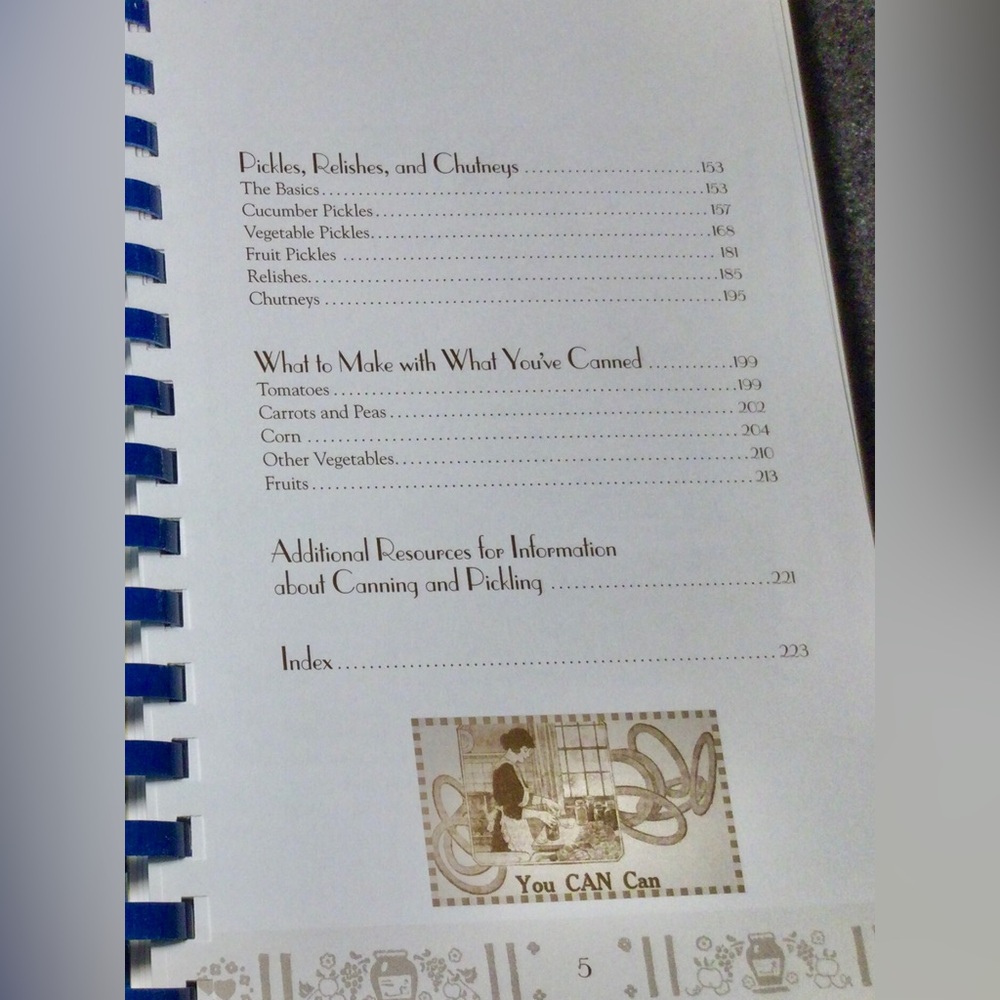 Pickles, Relishes, and Chutneys ........................153
The Basics....................................................153
Cucumber Pickles.............................................157
Vegetable Pickles.............................................168
Fruit Pickles ................................................. 181
Relishes.......................................................185
Chutneys .....................................................195
What to Make with What You've Canned ............199
Tomatoes.....................................................199
Carrots and Peas............................................. 202
Corn .........................................................204
Other Vegetables..............................................210
Fruits.........................................................213
Additional Resources for Information
about Canning and Pickling ..............................221
Index............................................................223
You CAN Can
5